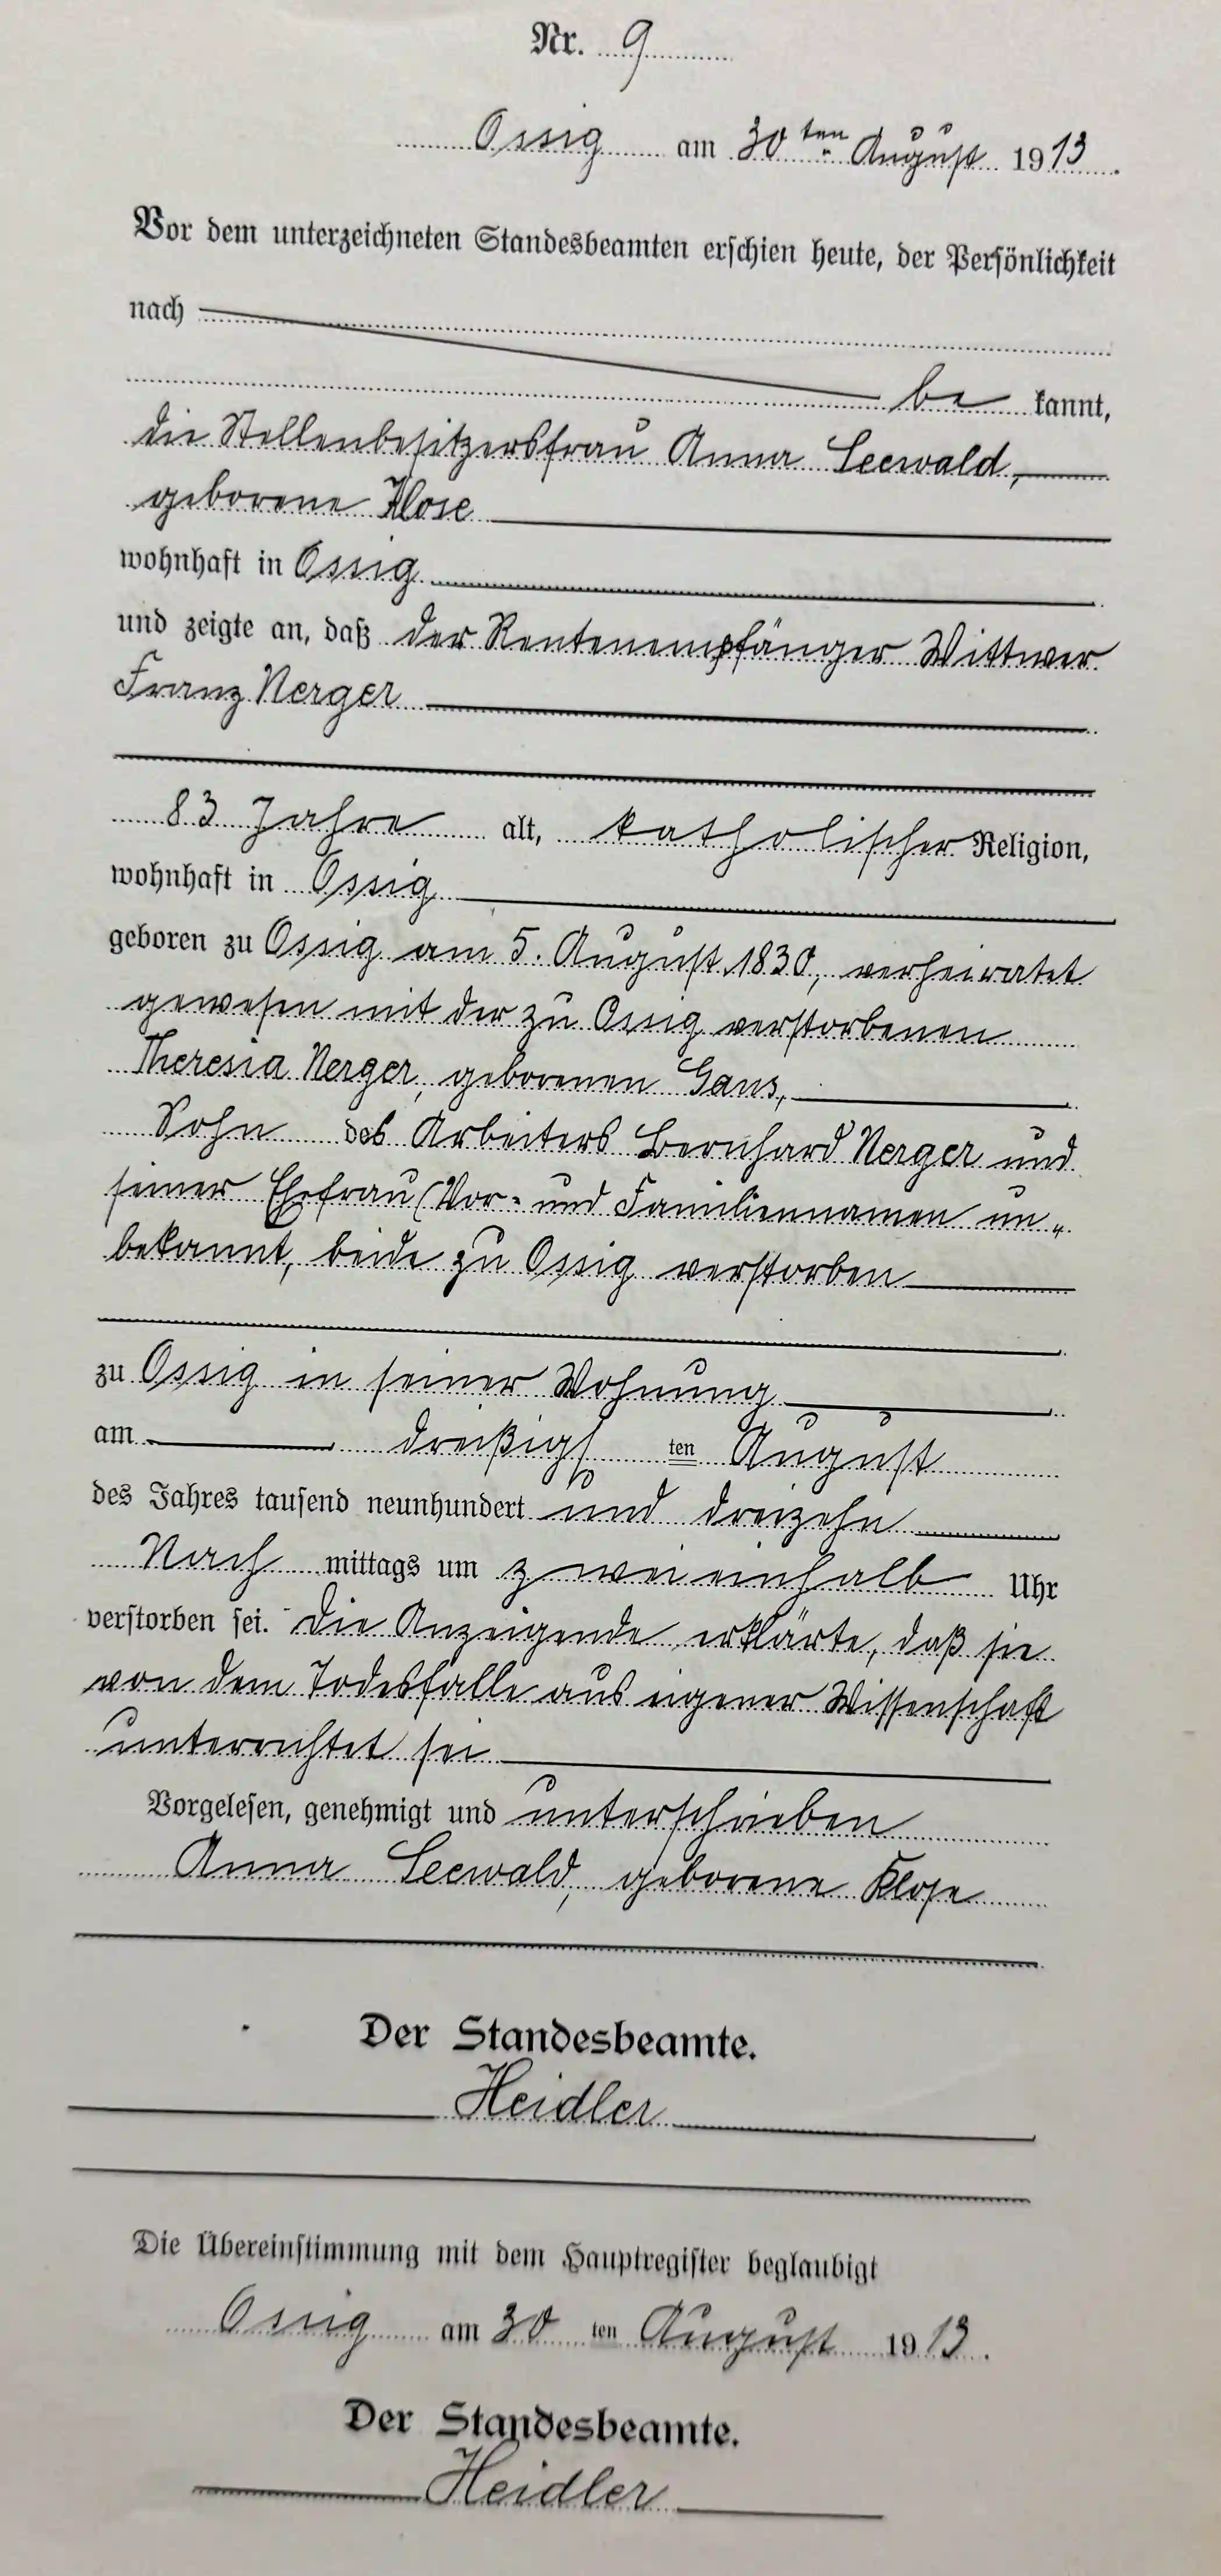 Nr. 9
Ossig am 30ten August 1913.
Vor dem unterzeichneten Standesbeamten erschien heute, der Persönlichkeit
nach
be kannt,
die Stellenbesitzersfrau Anna Seewald,
geborene Klose
wohnhaft in Ossig
und zeigte an, daß der Rentenempfänger Wittwer
Franz Nerger
83 Jahre alt, katholischer Religion,
wohnhaft in Ossig
geboren zu Ossig am 5. August 1830, verheiratet
gewesen mit der zu Ossig verstorbenen
Theresia Nerger, geborenen Gans,
Sohn des Arbeiters Bernhard Nerger und
seiner Ehefrau (Vor- und Familiennamen un-
bekannt, beide zu Ossig verstorben
zu Ossig in seiner Wohnung
am dreißigs ten August
des Jahres tausend neunhundert und dreizehn
Nach mittags um zwei einhalb Uhr
verstorben sei. Die Anzeigende erklärte, daß sie
von dem Todesfalle aus eigener Wissenschaft
unterrichtet sei
Vorgelesen, genehmigt und unterschrieben
Anna Seewald, geborene Klose
Der Standesbeamte.
Heidler
Die Übereinstimmung mit dem Hauptregister beglaubigt
Ossig am 30 ten August 1913.
Der Standesbeamte.
Heidler